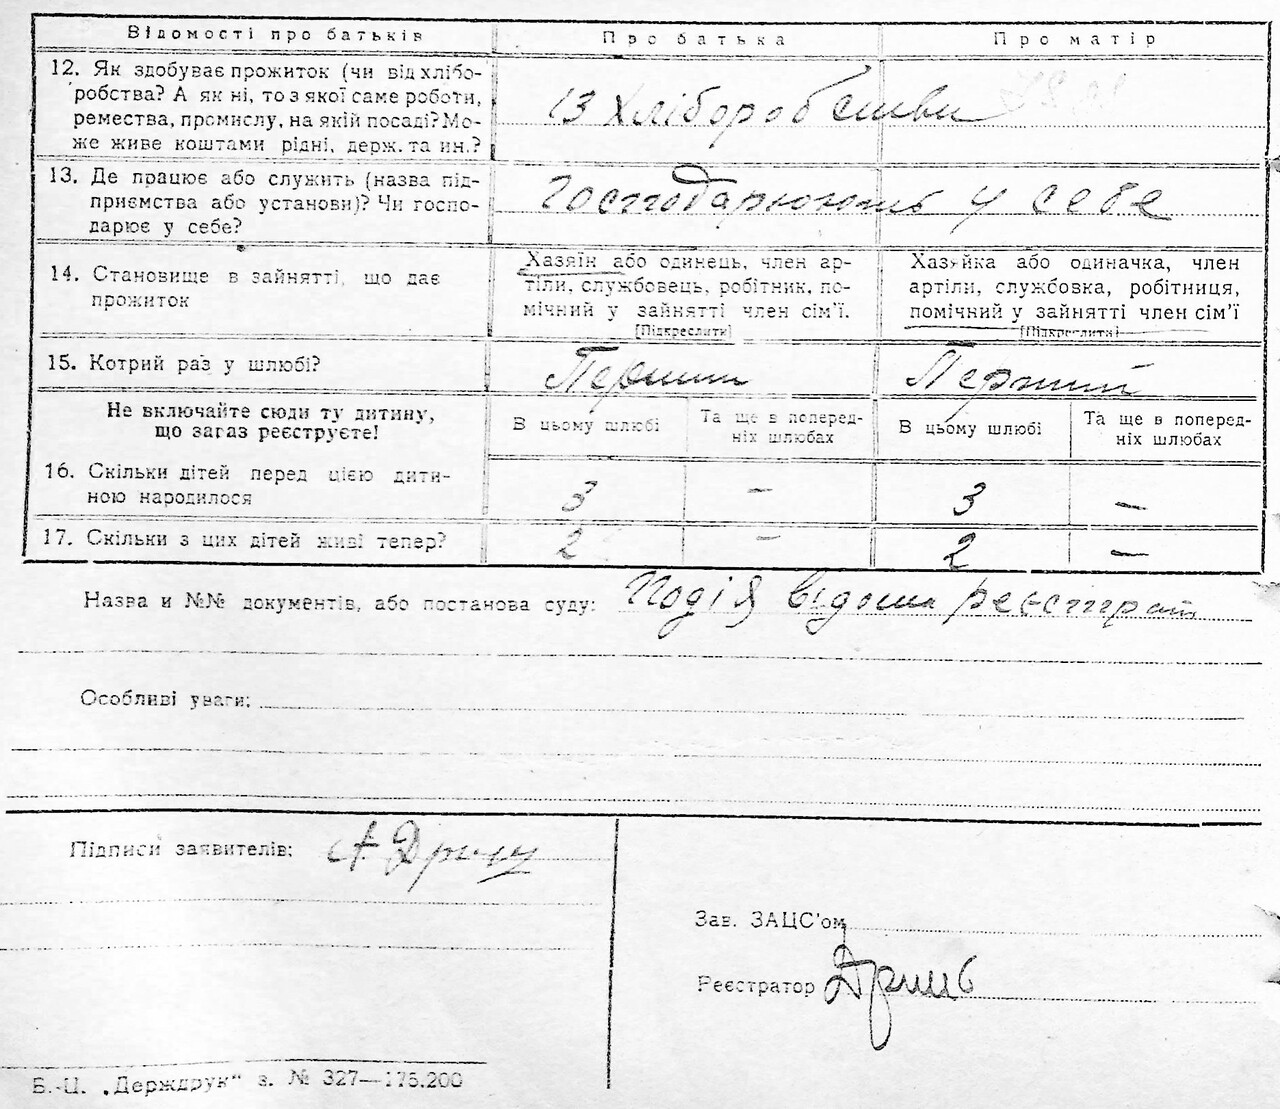 Відомості про батьків Про батька Про матір
12. Як здобуває прожиток (чи від хлібо-
робства? А як ні, то з якої саме роботи,
ремества, промислу, на якій посаді? Мо-
же живе коштами рідні, держ. та ин.?
Із Хліборобства
13. Де працює або служить (назва під-
приємства або установи)? Чи госпо-
дарює у себе?
Господарюють у себе
14. Становище в зайнятті, що дає
прожиток
Хазяїн або одинець, член ар-
тіли, службовець, робітник, по-
мічний у зайнятті член сім'ї.
[Підкреслити]
Хазяйка або одиначка, член
артіли, службовка, робітниця,
помічний у зайнятті член сім'ї
[Підкреслити]
15. Котрий раз у шлюбі? Перший Перший
Не включайте сюди ту дитину,
що зараз реєструєте!
В цьому шлюбі
Та ще в поперед-
ніх шлюбах
В цьому шлюбі
Та ще в поперед-
ніх шлюбах
16. Скільки дітей перед цією дити-
ною народилося
3 – 3 –
17. Скільки з цих дітей живі тепер? 2 – 2 –
Назва и №№ документів, або постанова суду: Подія відома реєстрат
Особливі уваги:
Підписи заявителів: А
Зав. ЗАЦС'ом
Реєстратор
Б.-Ц. „Держдрук" з. № 327—175.200